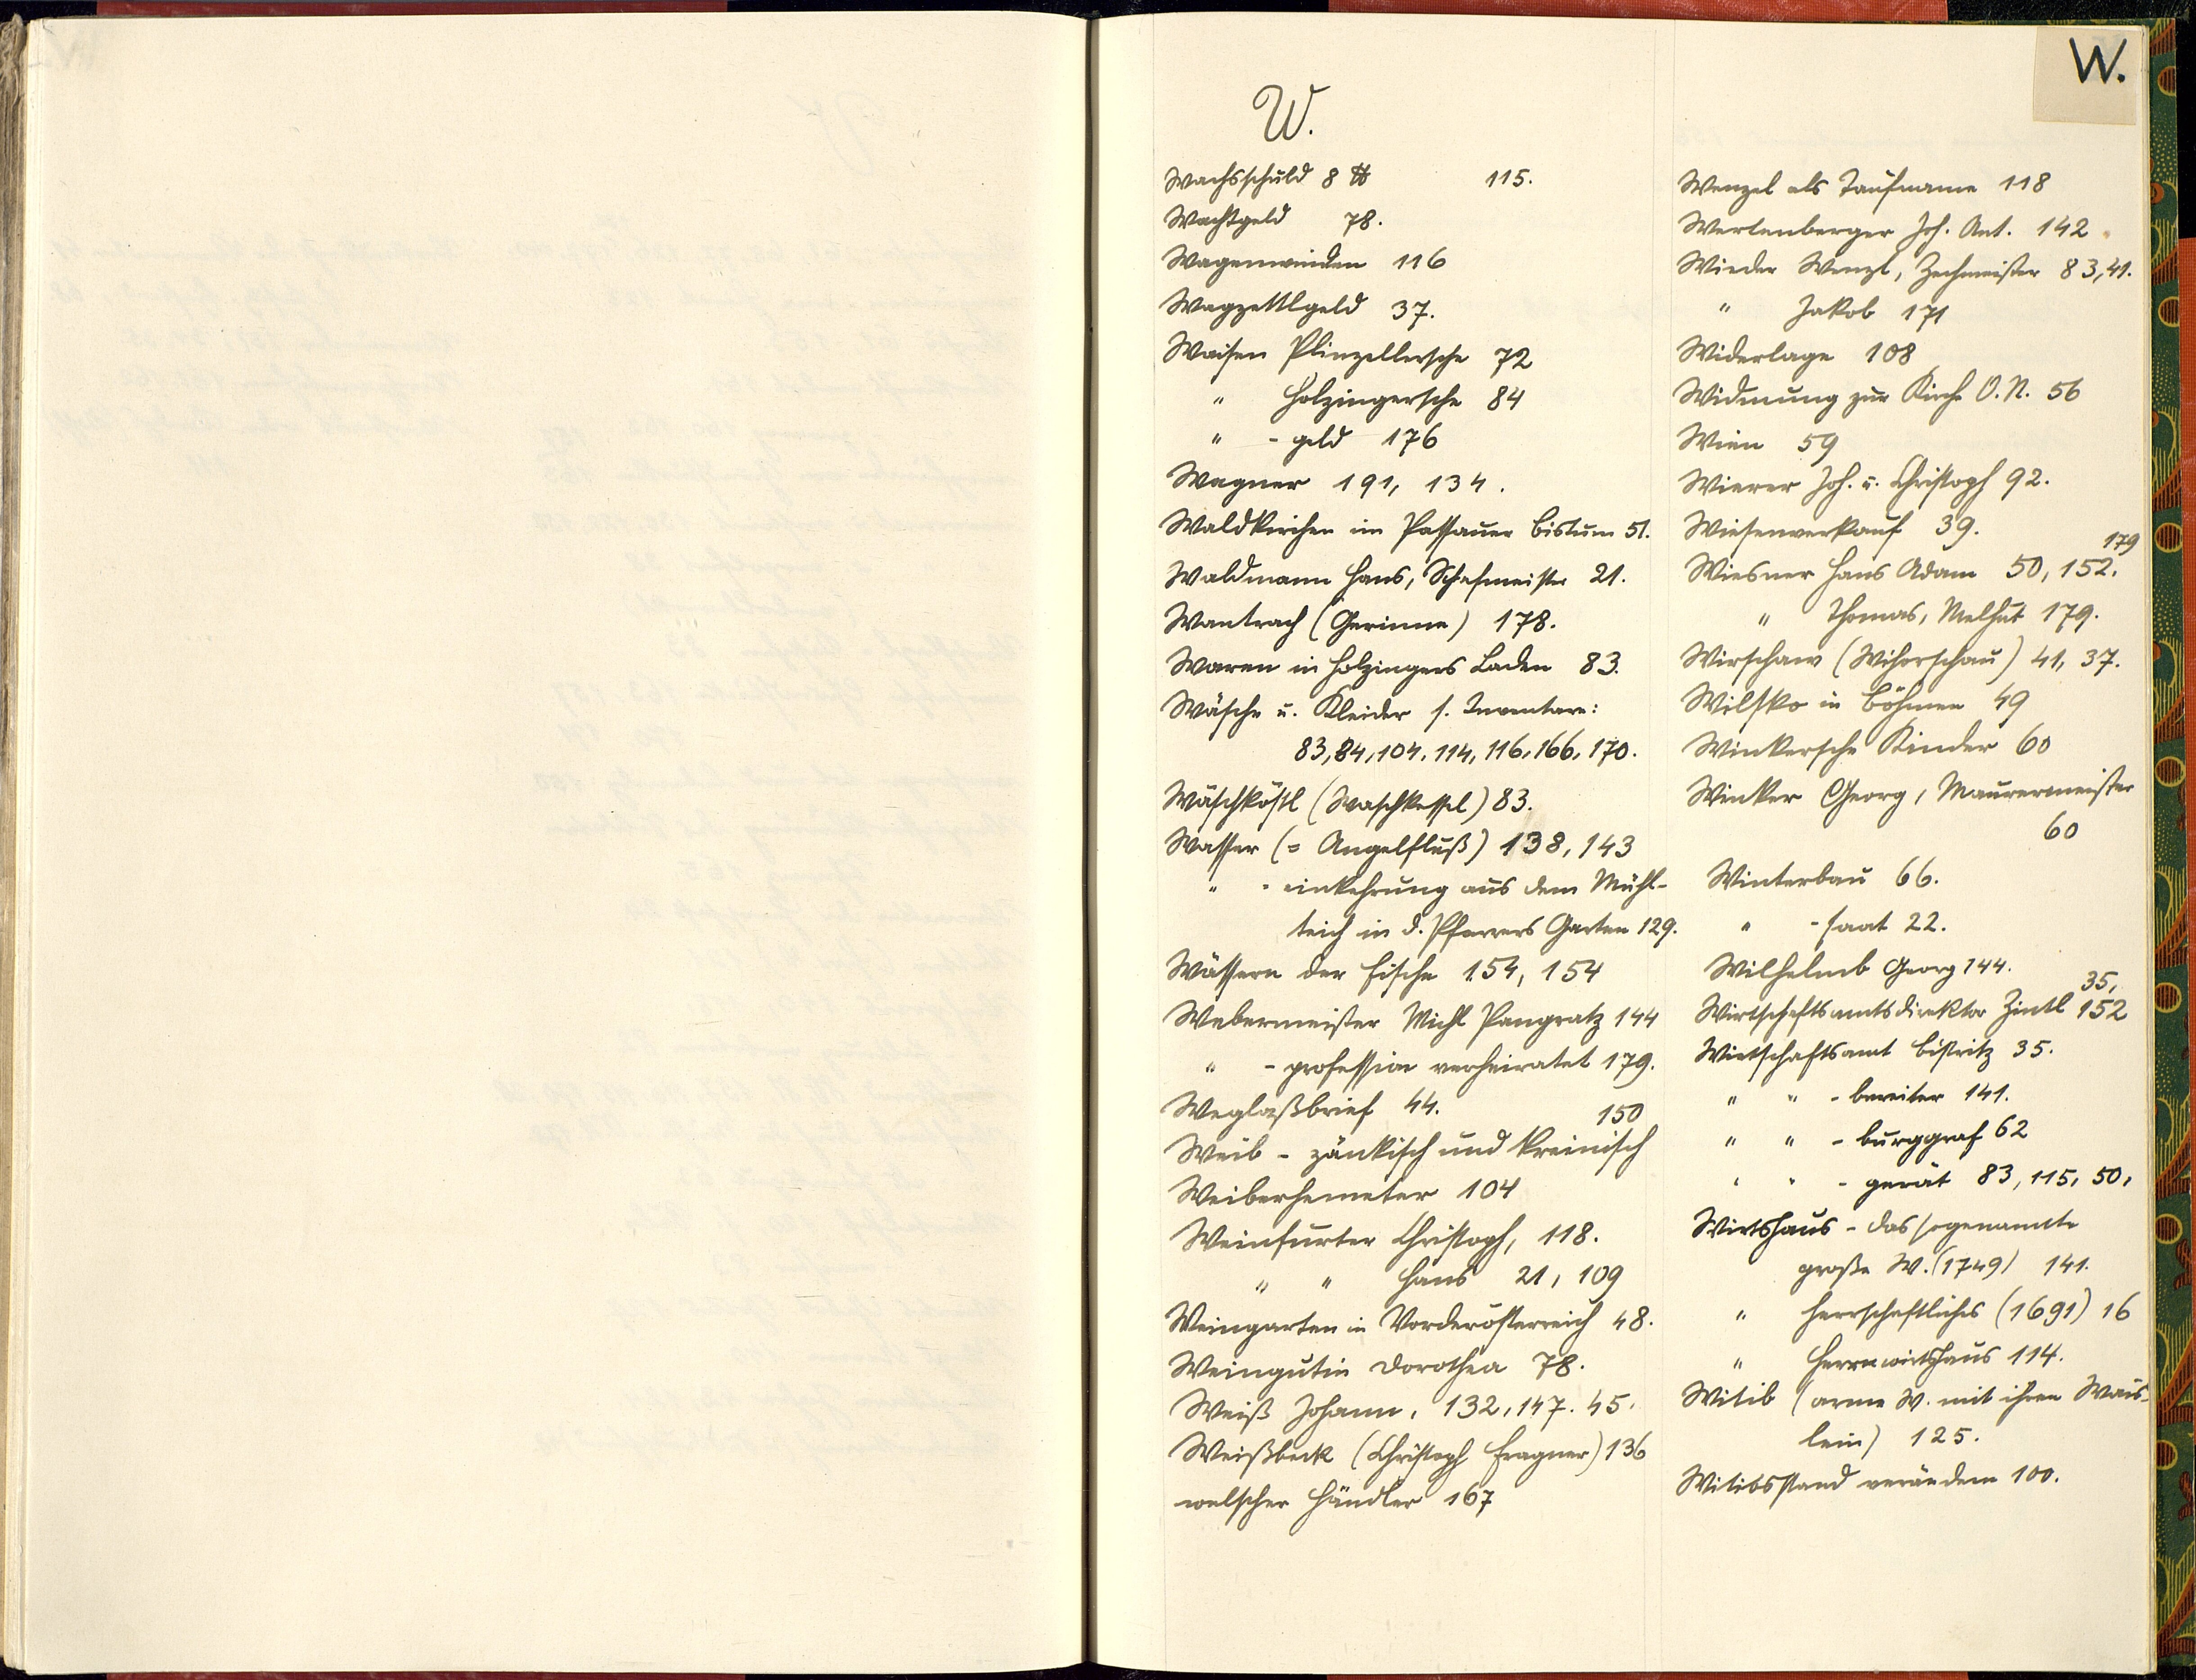 W.
W.
Wachsschuld 8 ℔ 115.
Wachtgeld 78.
Wagenwinden 116
Wagzettlgeld 37.
Waisen Plinzellersche 72
" Holzingersche 84
" - geld 176
Wagner 191, 134.
Waldkirchen im Passauer Bistum 51.
Waldmann Hans, Schafmeister 21.
Wantrach (Gerinne) 178.
Waren in Holzingers Laden 83.
Wäsche u. Kleider s. Inventare:
83, 84, 104, 114, 116, 166, 170.
Wäschköstl (Waschkessel) 83.
Wasser (= Angelfluß) 138, 143
" - einkehrung aus dem Mühl-
teich in d. Pfarrers Garten 129.
Wässern der Fische 154, 154
Webermeister Michl Pangratz 144
" - profession verheiratet 179.
Weglaßbrief 44.
150
Weib - zänkisch und kreinisch
Weiberhemeter 104
Weinfurter Christoph, 118.
" " Hans 21, 109
Weingarten in Vorderösterreich 48.
Weingutin Dorothea 78.
Weiß Johann, 132, 147. 45.
Weißbeck (Christoph Fragner) 136
welscher Händler 167
Wenzel als Taufname 118
Wertenberger Joh. Ant. 142
Wieder Wenzl, Zechmeister 83, 41.
" Jakob 171
Widerlage 108
Widmung zur Kirche O.N. 56
Wien 59
Wierer Joh. u. Christoph 92.
Wiesenverkauf 39.
179
Wiesner Hans Adam 50, 152.
" Thomas, Melhut 179.
Wirschaw (Wihorschau) 41, 37.
Wilsko in Böhmen 49
Winkersche Kinder 60
Winker Georg, Maurermeister
60
Winterbau 66.
" - saat 22.
Wilhelmb Georg 144.
35,
Wirtschaftsamtsdirektor Zintl 152
Wirtschaftsamt Bistritz 35.
" " - bereiter 141.
" " - burggraf 62
" " - gerät 83, 115, 50,
Wirtshaus - das sogenannte
große W. (1749) 141.
" herrschaftliches (1691) 16
" Herrnwirtshaus 114.
Witib (arme W. mit ihren Wais-
lein) 125.
Witibsstand verändern 100.